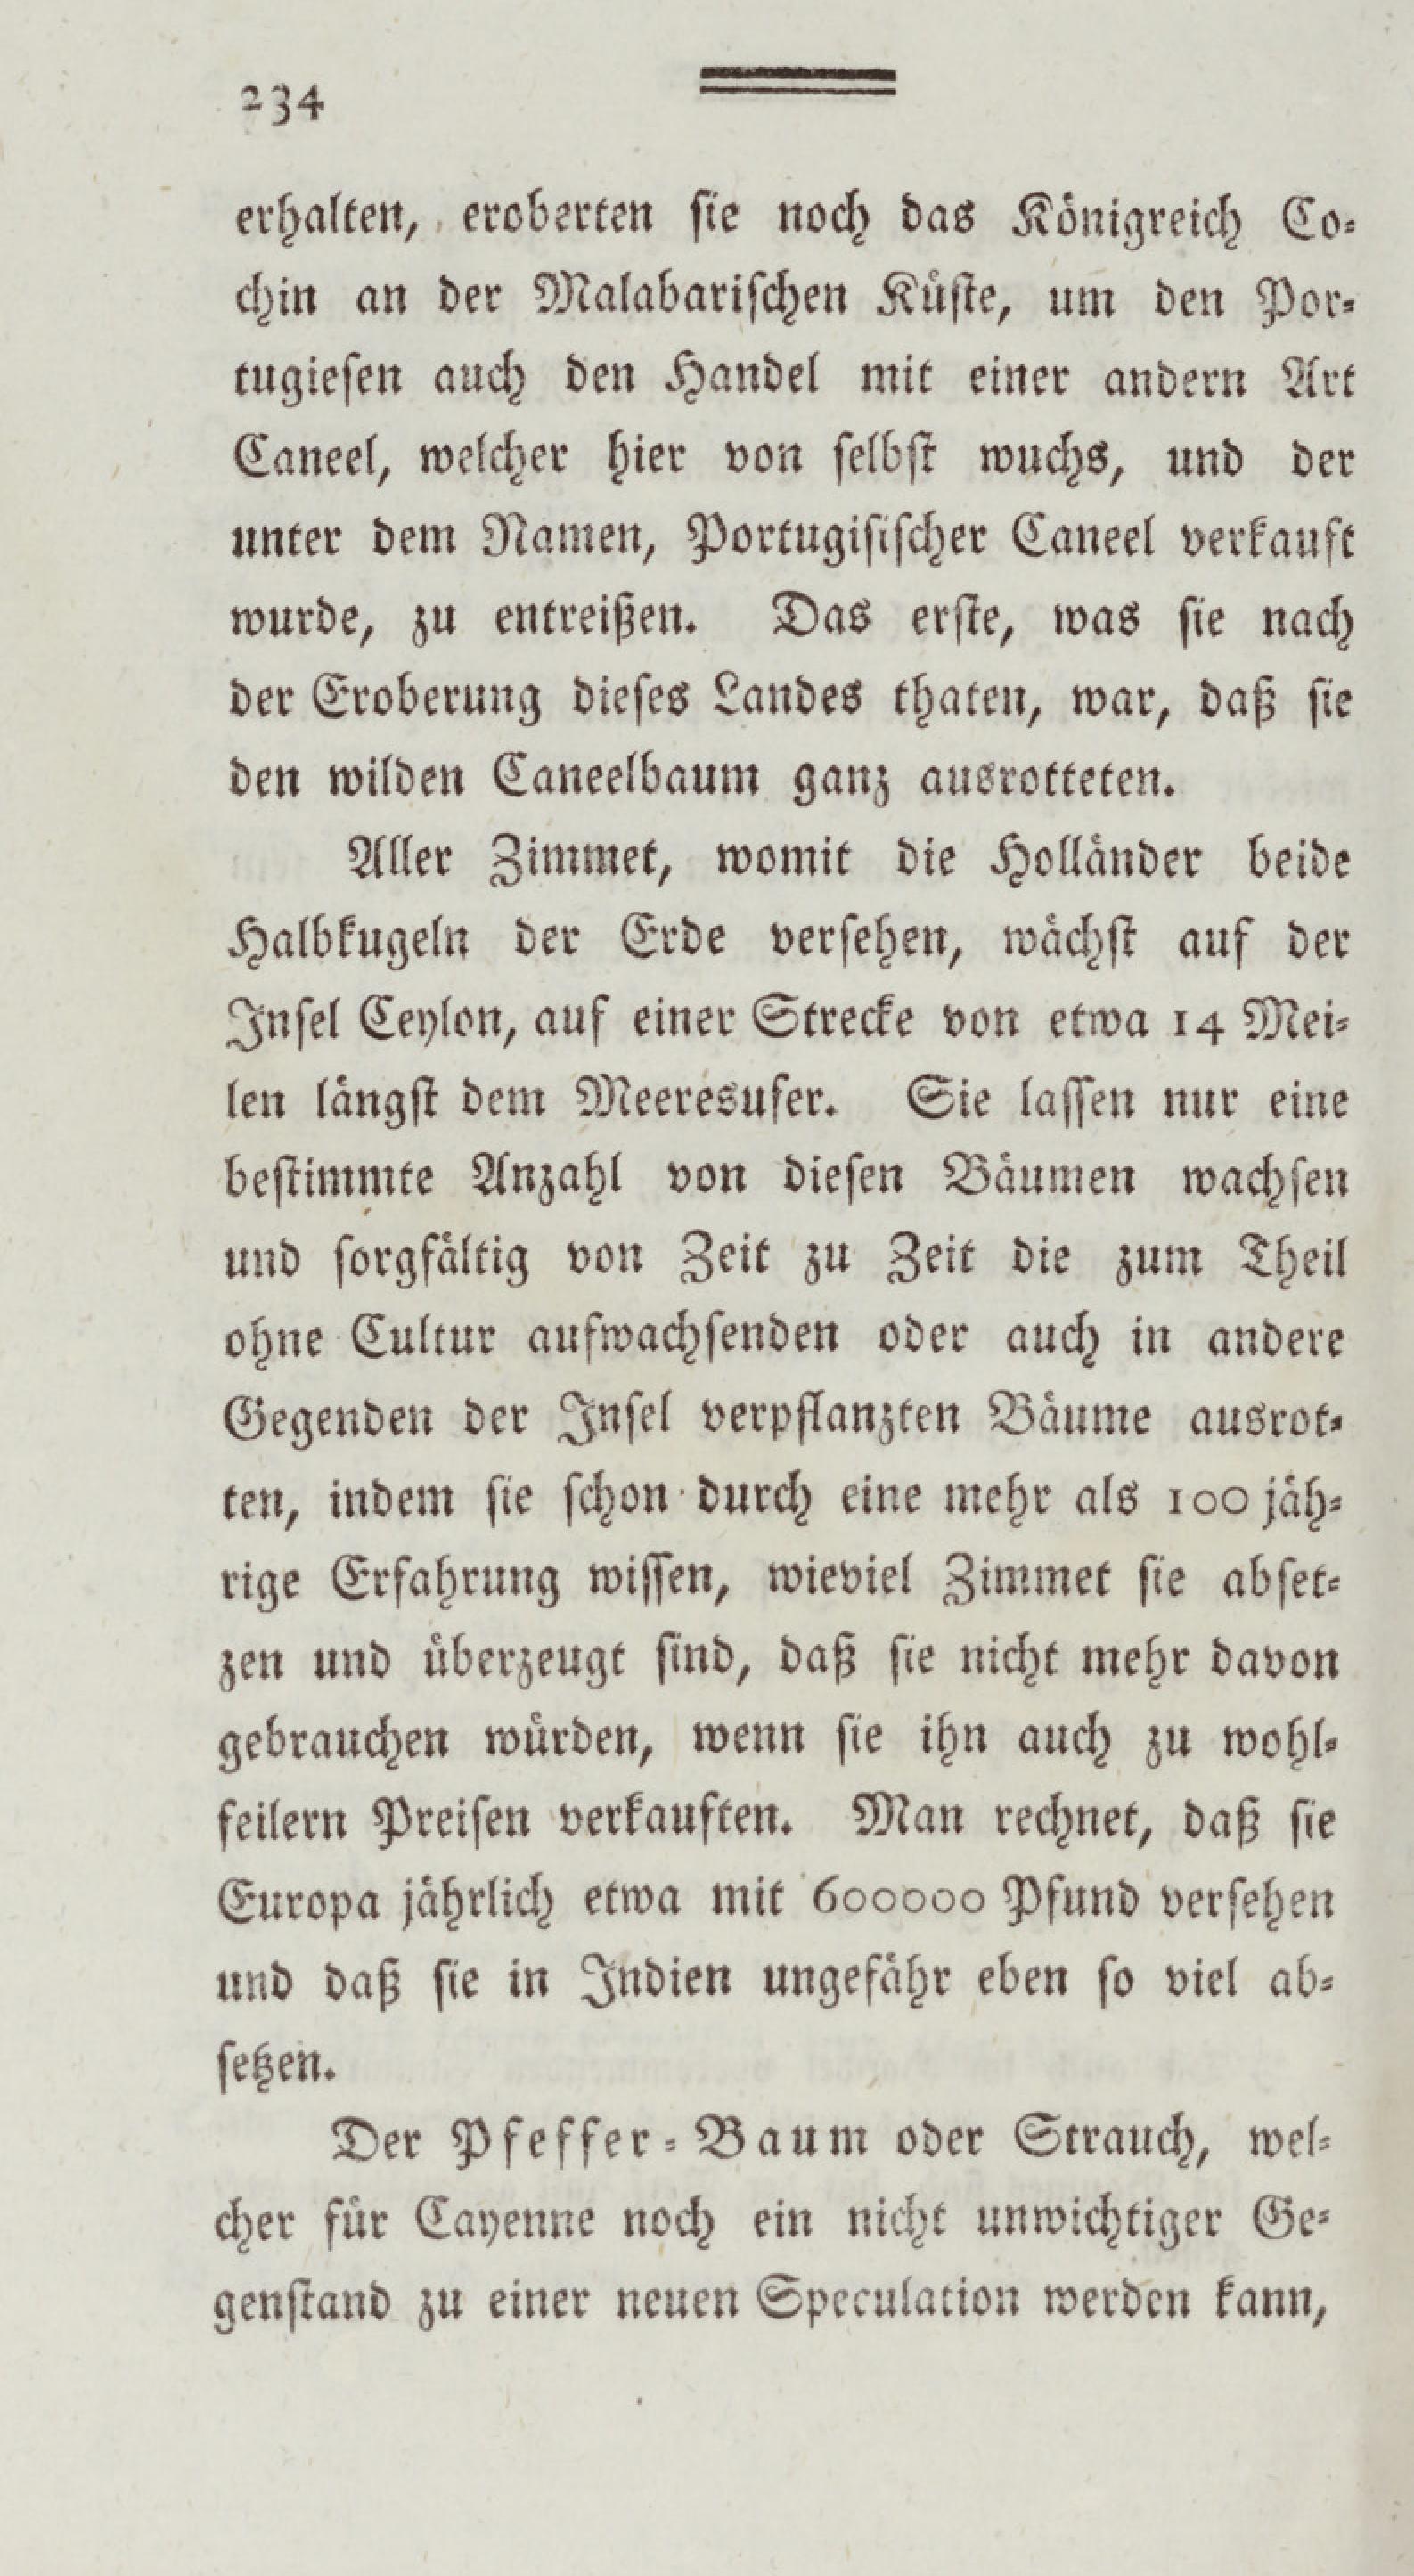 234
erhalten, eroberten sie noch das Königreich Co-
chin an der Malabarischen Küste, um den Por-
tugiesen auch den Handel mit einer andern Art
Caneel, welcher hier von selbst wuchs, und der
unter dem Namen, Portugisischer Caneel verkauft
wurde, zu entreißen. Das erste, was sie nach
der Eroberung dieses Landes thaten, war, daß sie
den wilden Caneelbaum ganz ausrotteten.
Aller Zimmet, womit die Holländer beide
Halbkugeln der Erde versehen, wächst auf der
Insel Ceylon, auf einer Strecke von etwa 14 Mei-
len längst dem Meeresufer. Sie lassen nur eine
bestimmte Anzahl von diesen Bäumen wachsen
und sorgfältig von Zeit zu Zeit die zum Theil
ohne Cultur aufwachsenden oder auch in andere
Gegenden der Insel verpflanzten Bäume ausrot-
ten, indem sie schon durch eine mehr als 100 jäh-
rige Erfahrung wissen, wieviel Zimmet sie abset-
zen und überzeugt sind, daß sie nicht mehr davon
gebrauchen würden, wenn sie ihn auch zu wohl-
feilern Preisen verkauften. Man rechnet, daß sie
Europa jährlich etwa mit 600000 Pfund versehen
und daß sie in Indien ungefähr eben so viel ab-
setzen.
Der Pfeffer-Baum oder Strauch, wel-
cher für Cayenne noch ein nicht unwichtiger Ge-
genstand zu einer neuen Speculation werden kann,